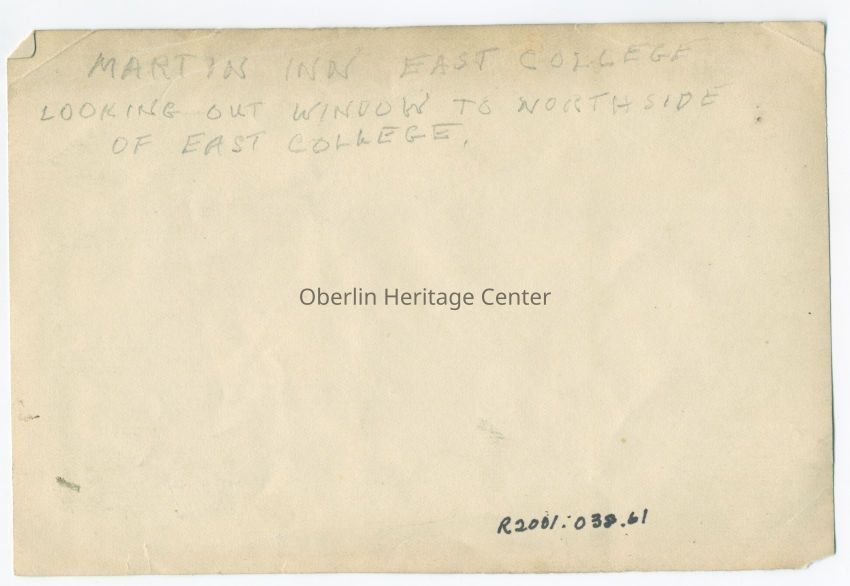 MARTIN INN EAST COLLEGE
LOOKING OUT WINDOW TO NORTH SIDE
OF EAST COLLEGE.
Oberlin Heritage Center
R2001.038.61